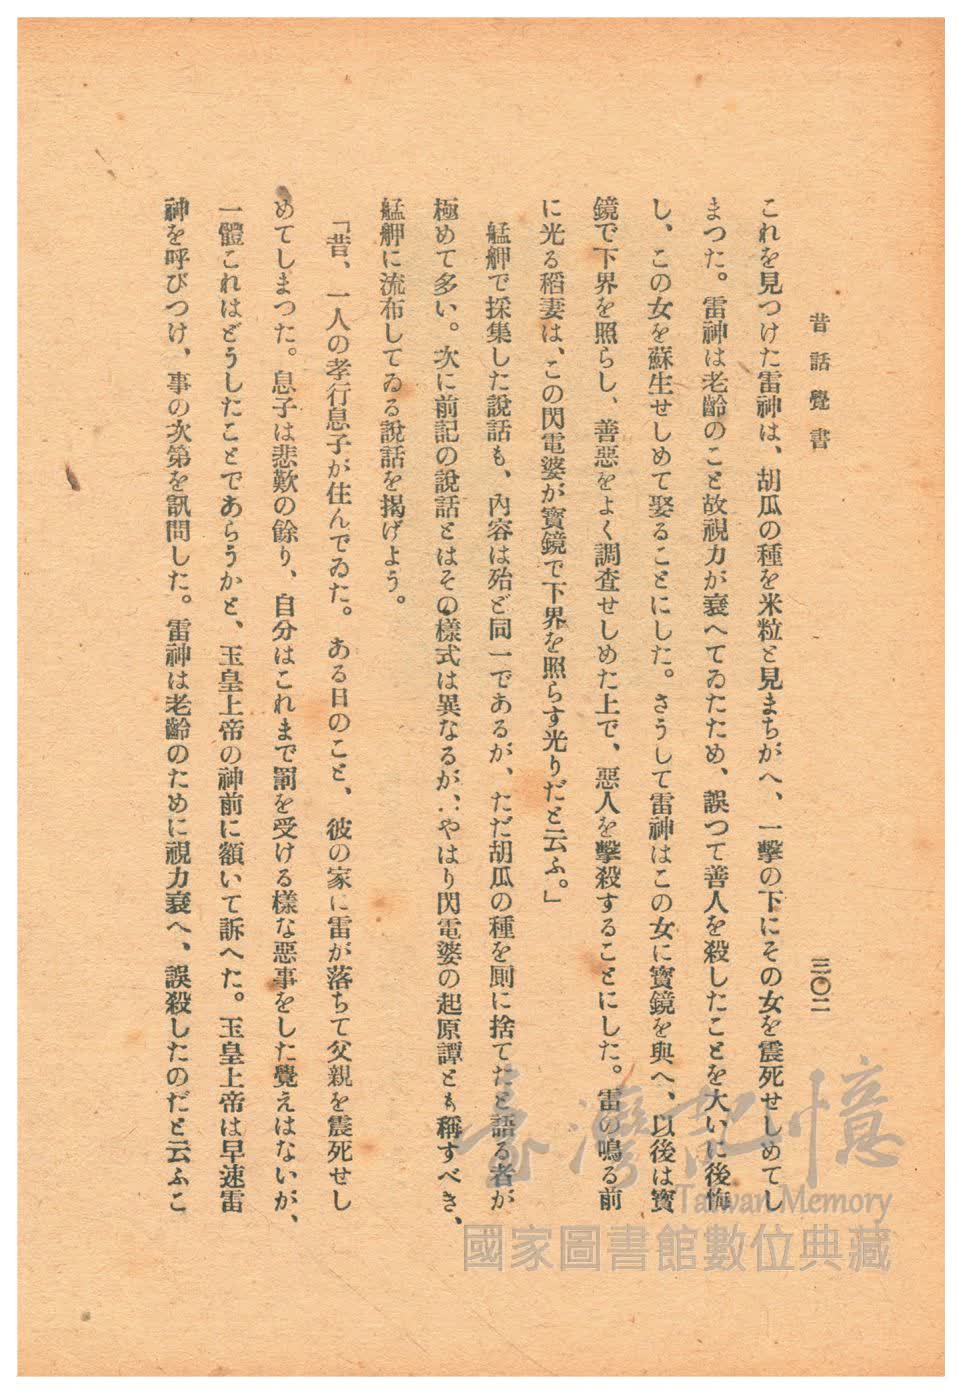 昔話覺書
三〇二
これを見つけた雷神は、胡瓜の種を米粒と見まちがへ、一擊の下にその女を震死せしめてし
まつた。雷神は老齡のこと故視力が衰へてゐたため、誤つて善人を殺したことを大いに後悔
し、この女を蘇生せしめて娶ることにした。さうして雷神はこの女に寶鏡を與へ、以後は寶
鏡で下界を照らし、善惡をよく調査せしめた上で、惡人を擊殺することにした。雷の鳴る前
に光る稻妻は、この閃電婆が寶鏡で下界を照らす光りだと云ふ。」
艋舺で採集した說話も、內容は殆ど同一であるが、ただ胡瓜の種を厠に捨てたと語る者が
極めて多い。次に前記の說話とはその樣式は異なるが、やはり閃電婆の起原譚とも稱すべき、
艋舺に流布してゐる說話を揭げよう。
「昔、一人の孝行息子が住んでゐた。ある日のこと、彼の家に雷が落ちて父親を震死せし
めてしまつた。息子は悲歎の餘り、自分はこれまで罰を受ける樣な惡事をした覺えはないが、
一體これはどうしたことであらうかと、玉皇上帝の神前に額いて訴へた。玉皇上帝は早速雷
神を呼びつけ、事の次第を訊問した。雷神は老齡のために視力衰へ、誤殺したのだと云ふこ
臺灣記憶
Taiwan Memory
國家圖書館數位典藏